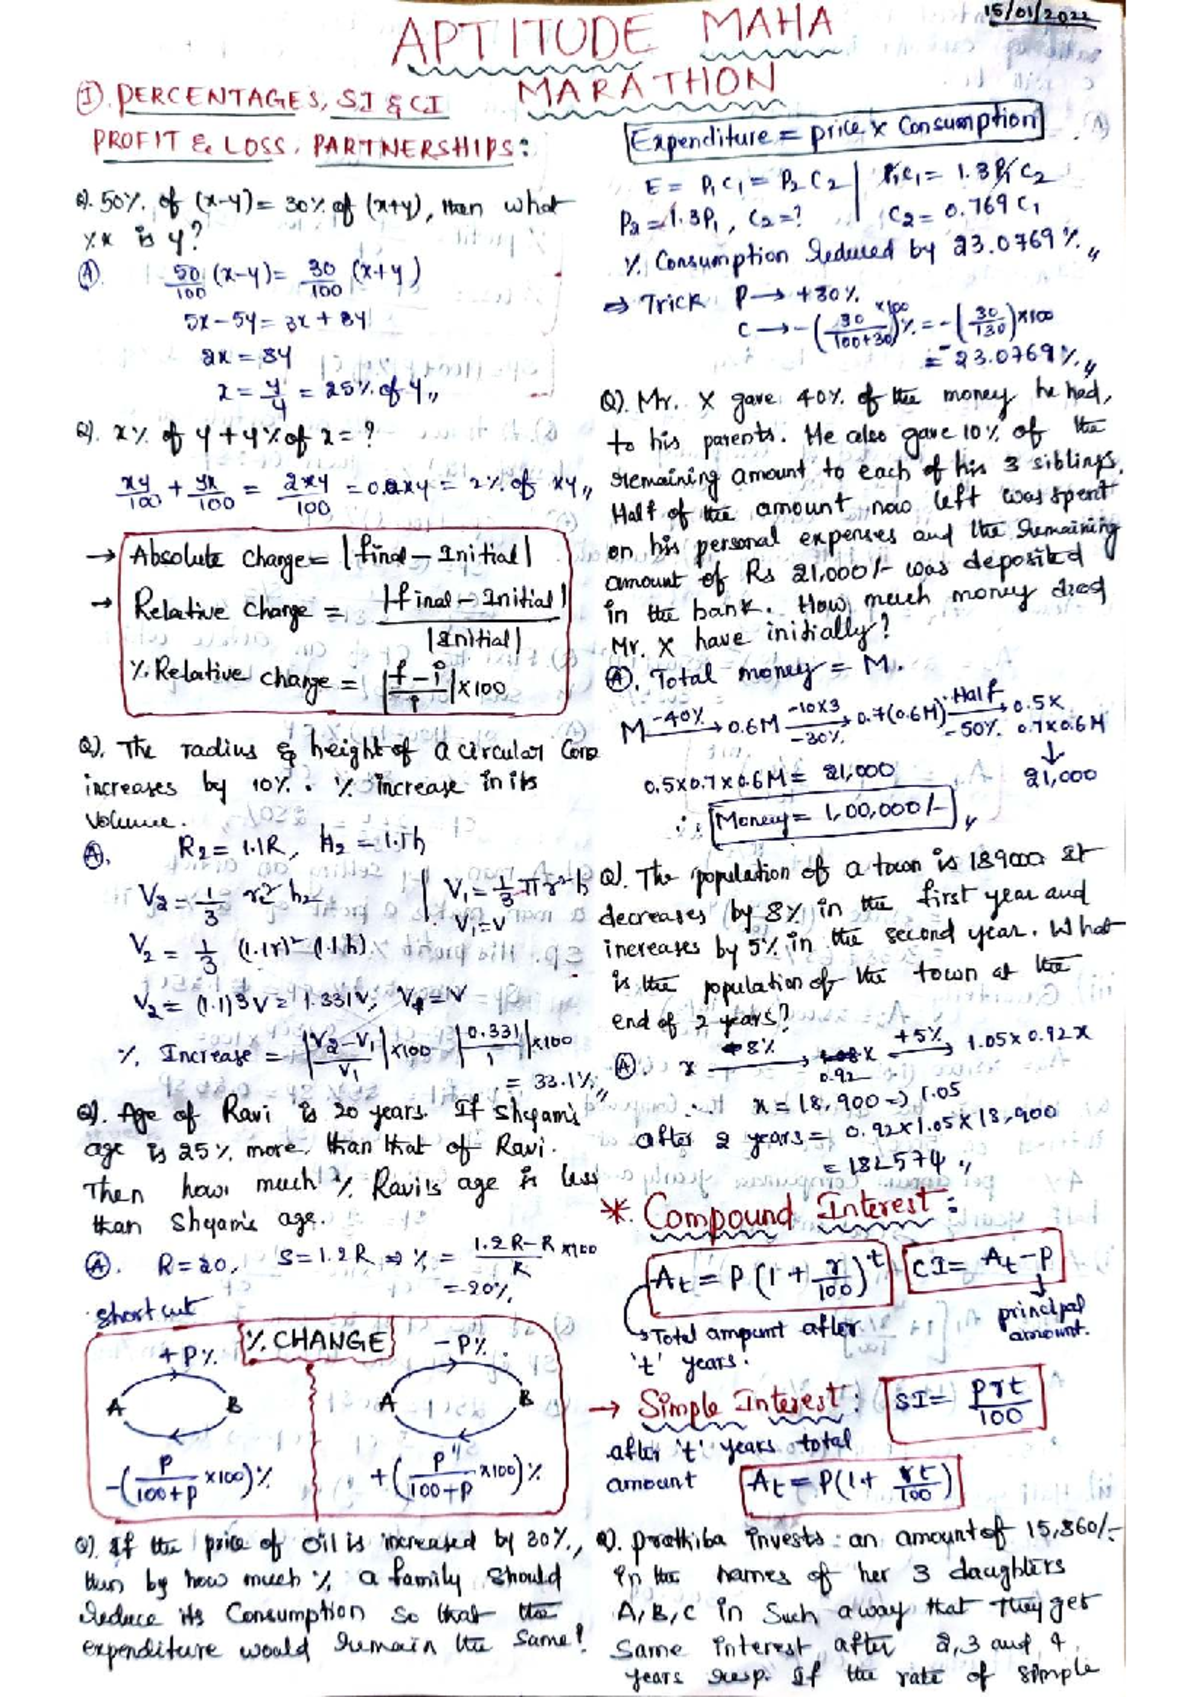 15/01/2022
APTITUDE MAHA
MARATHON
I. PERCENTAGES, SI & CI
PROFIT & LOSS, PARTNERSHIPS:
Q). 50% of (x-y) = 30% of (x+y), then what
% x is y?
(A). 50/100 (x-y) = 30/100 (x+y)
5x-5y = 3x + 3y
2x = 8y
x = y/4 = 25% of y,,
Q). x% of y + y% of x = ?
xy/100 + yx/100 = 2xy/100 = 0.2xy = 2% of xy,,
→ Absolute change = |final - Initial|
→ Relative change = |final - Initial| / |Initial|
% Relative change = |f-i / i| x 100
Q). The radius & height of a circular Cone
increases by 10%. % increase in its
volume.
(A). R2 = 1.1R, H2 = 1.1h
V2 = 1/3 r2² h2 | V1 = 1/3 πr²h
V1 = V
V2 = 1/3 (1.1r)² (1.1h)
V2 = (1.1)3V = 1.331V, V1 = V
% Increase = |V2-V1 / V1| x100 |0.331 / 1| x100
= 33.1%,,
Q). Age of Ravi is 20 years. If Shyam's
age is 25% more, than that of Ravi.
Then how much % Ravi's age is less
than Shyam's age.
(A). R = 20, S = 1.2R ⇒ % = 1.2R-R / R x100
= 20%
shortcut
% CHANGE
+P% -P%
A B A B
-(P/100+P x100)% +(P/100+P x100)%
Q). If the price of oil is increased by 30%,
then by how much % a family should
reduce its Consumption so that the
expenditure would remain the same?
Expenditure = price x Consumption
E = P1C1 = P2C2 | P1C1 = 1.3P1C2
P2 = 1.3P1, C2 = ? | C2 = 0.769 C1
% Consumption reduced by 23.0769%,,
⇒ Trick P → +30%
C → -(30/100+30 x100)% = -(30/130)x100
= -23.0769%,,
Q). Mr. X gave 40% of the money he had,
to his parents. He also gave 10% of the
remaining amount to each of his 3 siblings.
Half of the amount now left was spent
on his personal expenses and the remaining
amount of Rs 21,000/- was deposited
in the bank. How much money did
Mr. X have initially?
(A). Total money = M.
M -40%→ 0.6M -10x3 / -30%→ 0.7(0.6M) Half / -50%→ 0.5x
0.7x0.6M
↓
0.5x0.7x0.6M = 21,000 21,000
∴ Money = 1,00,000/-
Q). The population of a town is 189000. It
decreases by 8% in the first year and
increases by 5% in the second year. What
is the population of the town at the
end of 2 years?
(A) x 8%→ 0.92 x +5%→ 1.05 x 0.92x
∴ x = 18,900 ⇒ 1.05
after 2 years = 0.92x1.05x18,900
= 182574,,
* Compound Interest:
At = P(1 + r/100)^t CI = At - P
→ Total amount after
't' years.
principal
amount.
→ Simple Interest: SI = prt/100
after 't' years total
amount At = P(1 + rt/100)
Q). Prathiba invests an amount of 15,860/-
in the names of her 3 daughters
A, B, C in such a way that they get
same interest after 2, 3 and 4
years resp. If the rate of simple